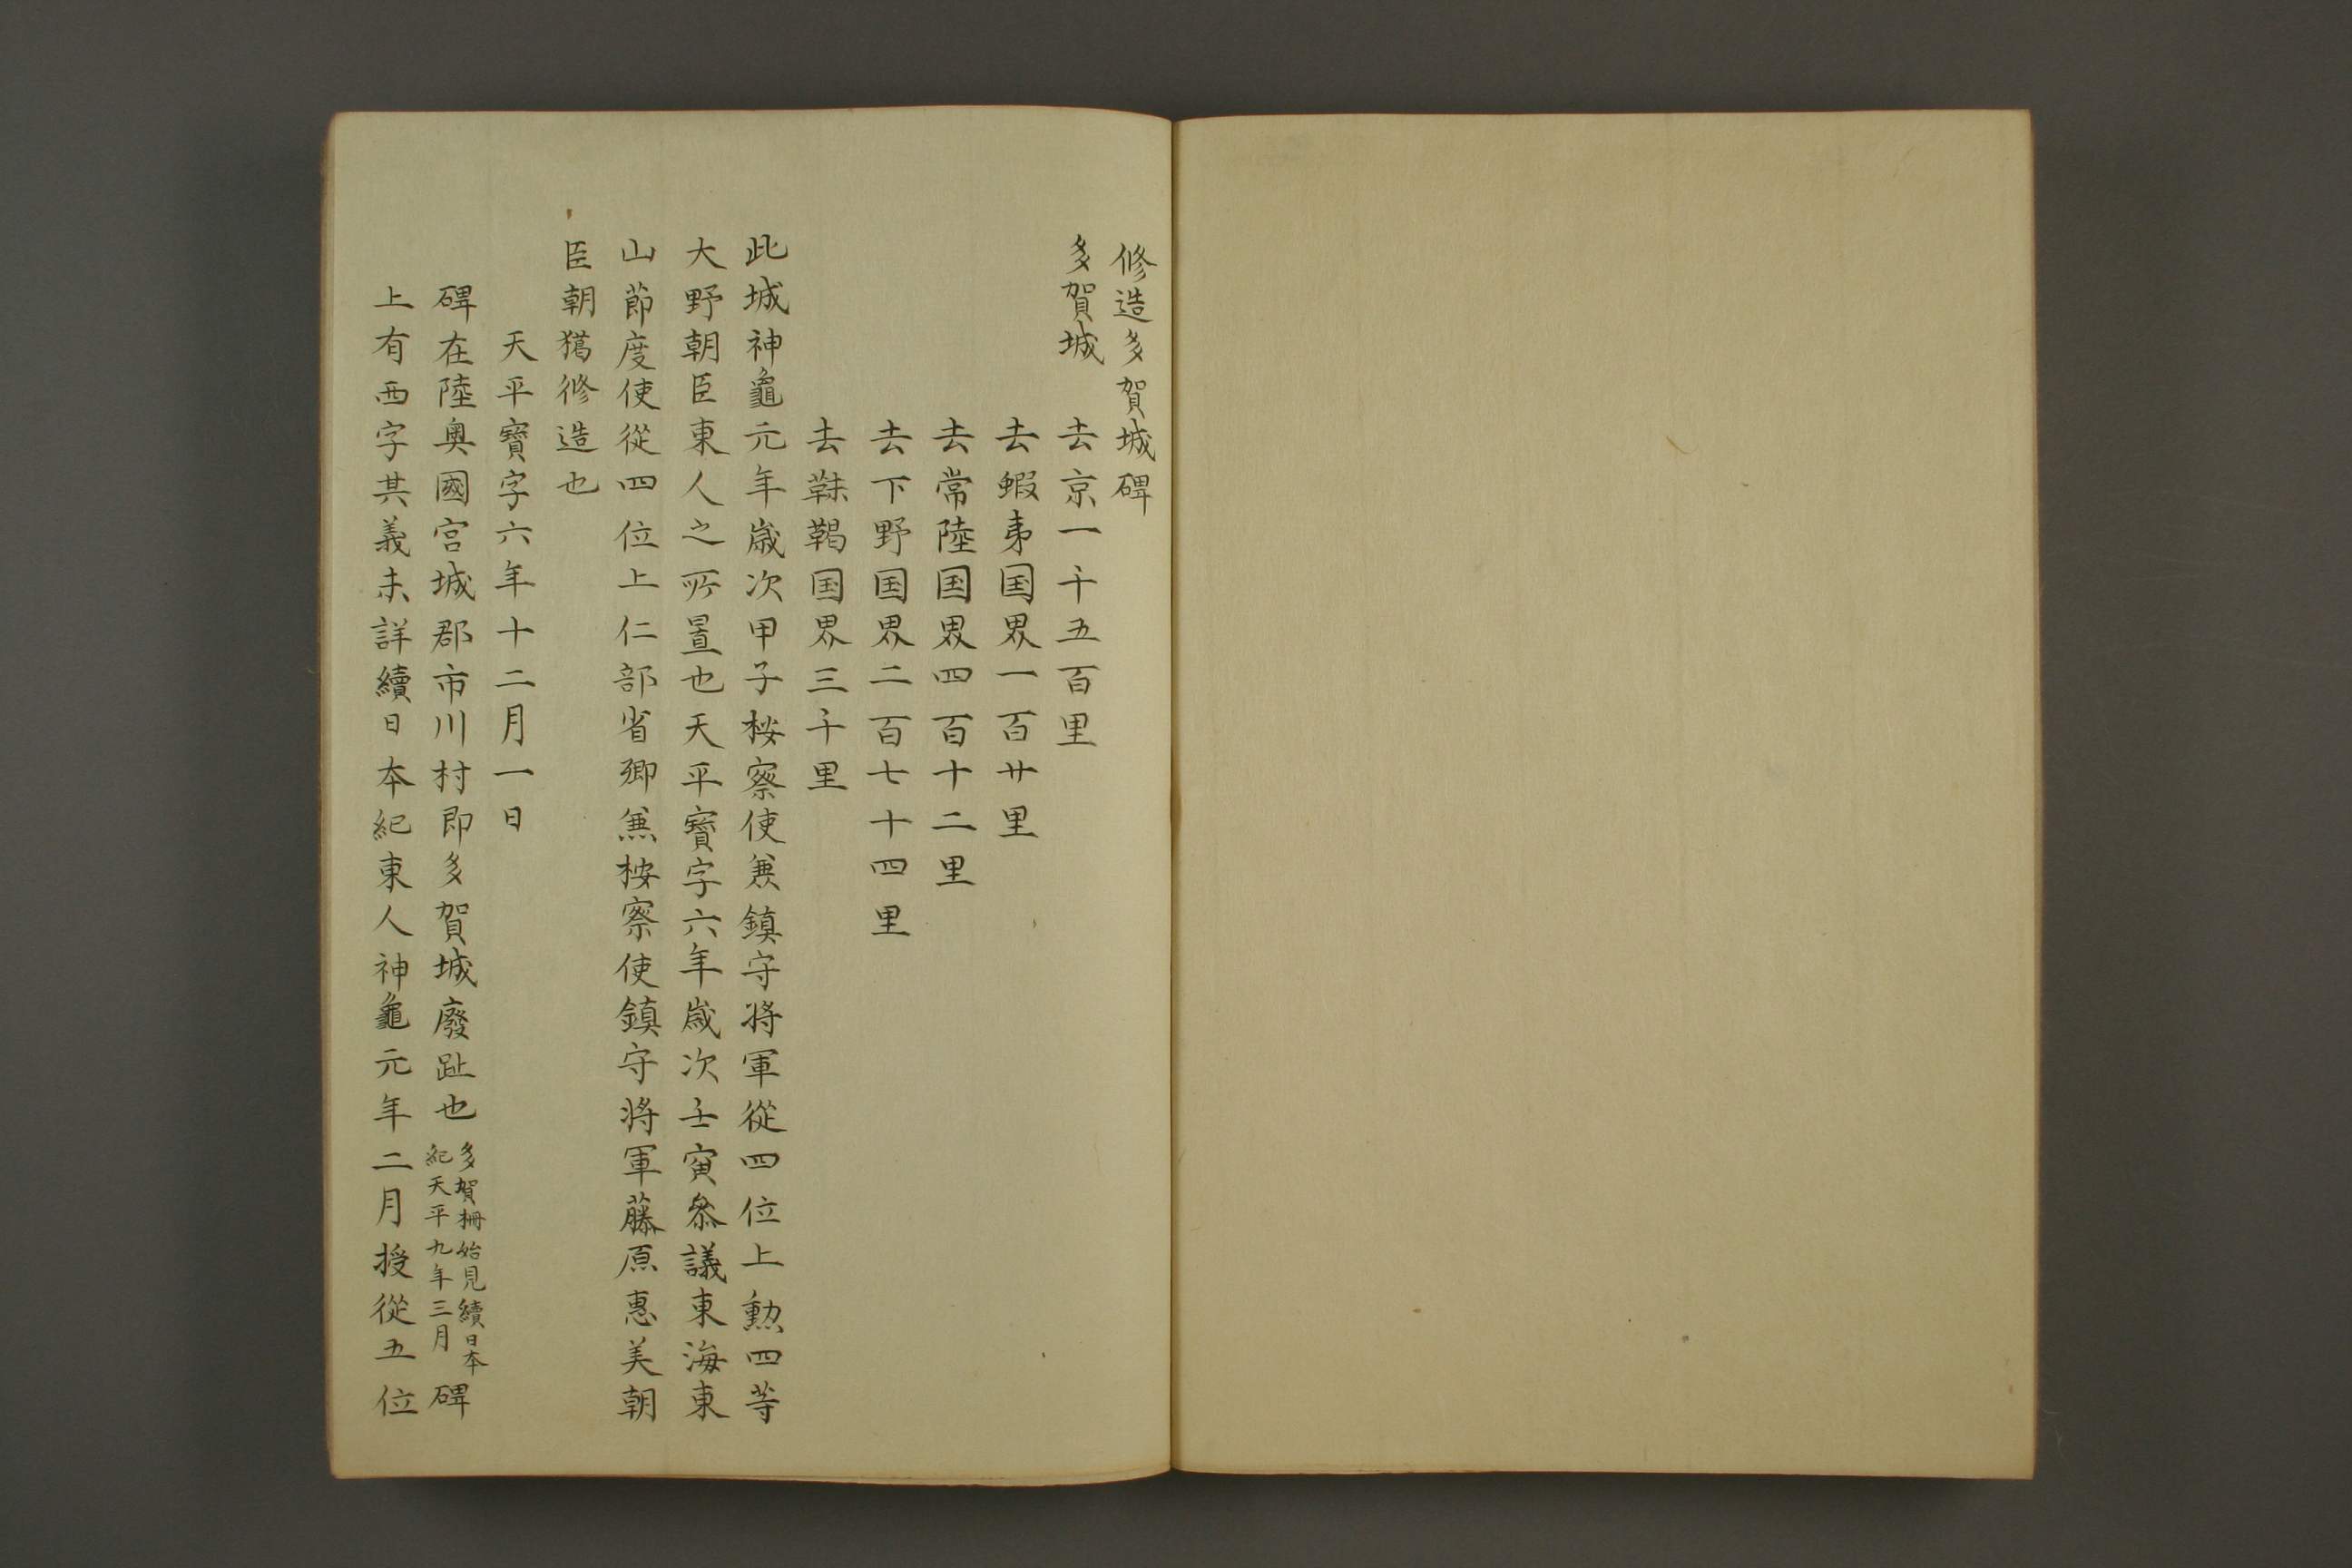 修造多賀城碑
多賀城
去京一千五百里
去蝦夷国界一百廿里
去常陸国界四百十二里
去下野国界二百七十四里
去靺鞨国界三千里
此城神龜元年歳次甲子桉察使兼鎮守將軍從四位上勲四等
大野朝臣東人之所置也天平寶字六年歳次壬寅叅議東海東
山節度使從四位上仁部省卿兼按察使鎮守將軍藤原惠美朝
臣朝獦修造也
天平寶字六年十二月一日
碑在陸奥國宮城郡市川村即多賀城廢趾也多賀柵始見續日本
紀天平九年三月碑
上有西字其義未詳續日本紀東人神龜元年二月授從五位